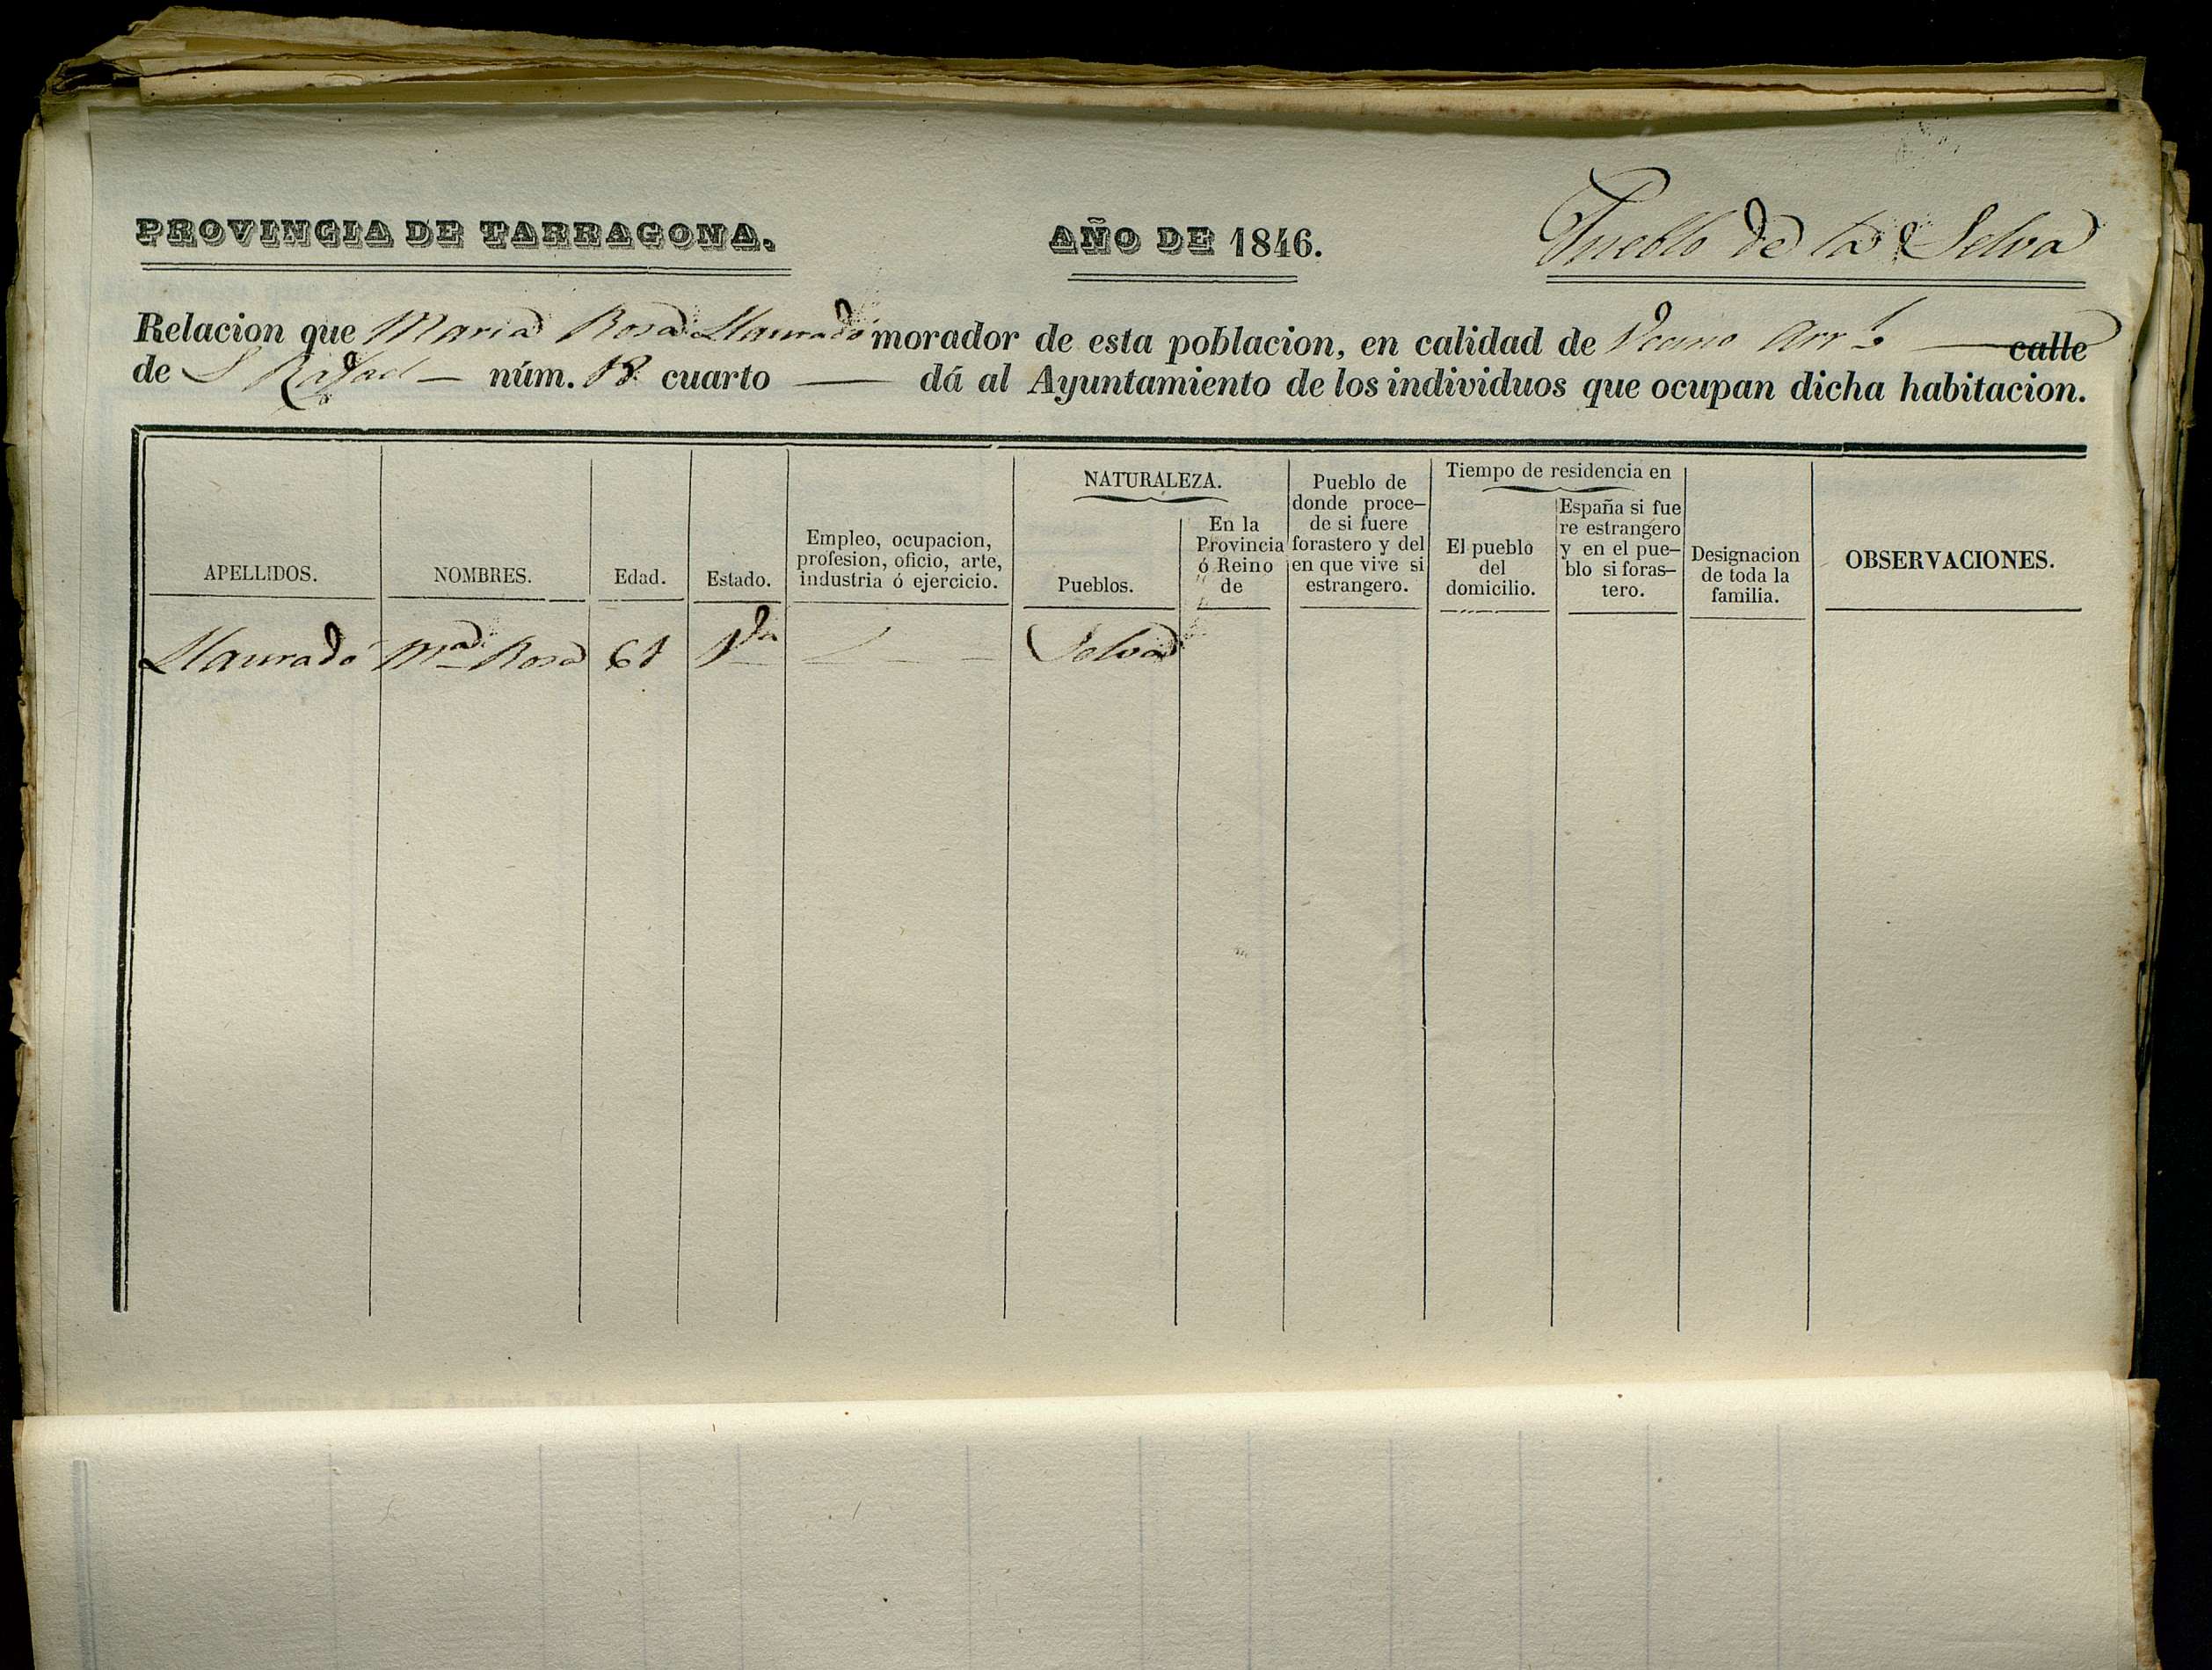 PROVINCIA DE TARRAGONA. AÑO DE 1846. Pueblo de la Selva
Relacion que Maria Rosa Llauradó morador de esta poblacion, en calidad de Vecino calle
de S Rafael núm. 18 cuarto — dá al Ayuntamiento de los individuos que ocupan dicha habitacion.
APELLIDOS.
NOMBRES.
Edad.
Estado.
Empleo, ocupacion,
profesion, oficio, arte,
industria ó ejercicio.
NATURALEZA.
Pueblos.
En la
Provincia
ó Reino
de
Pueblo de
donde proce-
de si fuere
forastero y del
en que vive si
estrangero.
Tiempo de residencia en
El pueblo
del
domicilio.
España si fue
re estrangero
y en el pue-
blo si foras-
tero.
Designacion
de toda la
familia.
OBSERVACIONES.
Llauradó Mª Rosa 61 Vda — Selva